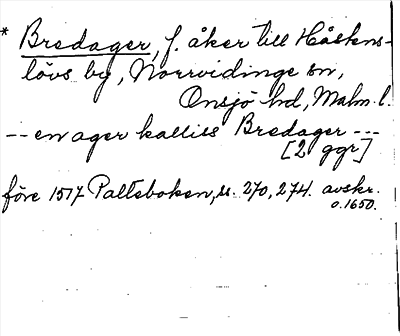 * Bredager, f. åker till Håstens-
lövs by, Norrvidinge sn,
Onsjö hd, Malm. l.
-- en ager kalliss Bredager ---
[2 ggr]
före 1517 Palteboken, s. 270, 274. avskr.
o. 1650.